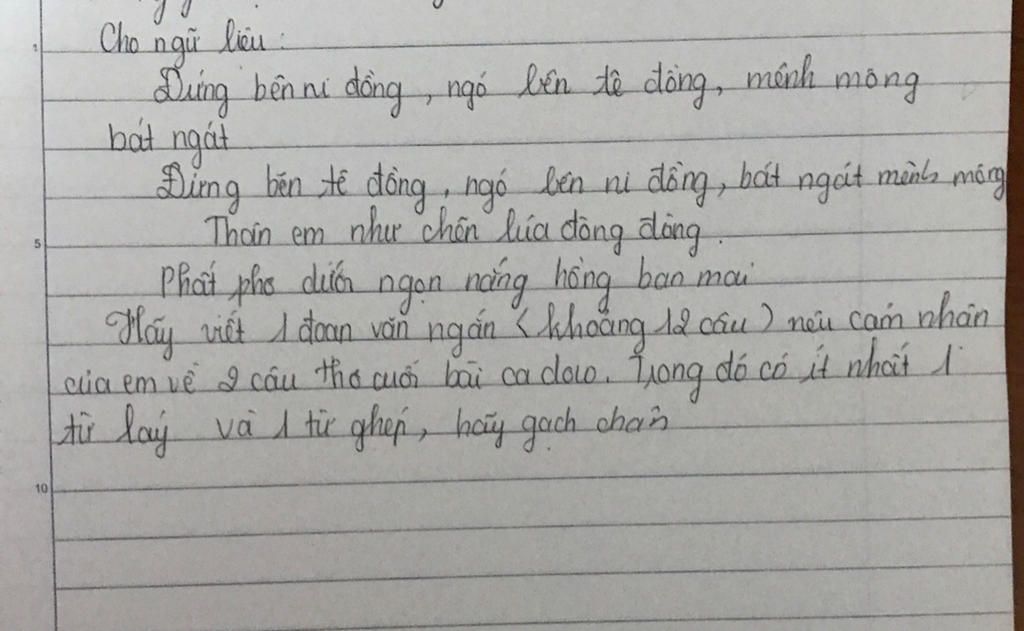 Cho ngữ liệu:
Đứng bên ni đồng, ngó bên tê đồng, mênh mông
bát ngát
Đứng bên tê đồng, ngó bên ni đồng, bát ngát mênh mông
Thân em như chẽn lúa đòng đòng.
Phất phơ dưới ngọn nắng hồng ban mai
Hãy viết 1 đoạn văn ngắn (khoảng 12 câu) nêu cảm nhận
của em về 2 câu thơ cuối bài ca dao. Trong đó có ít nhất 1
từ láy và 1 từ ghép, hãy gạch chân
1
5
10